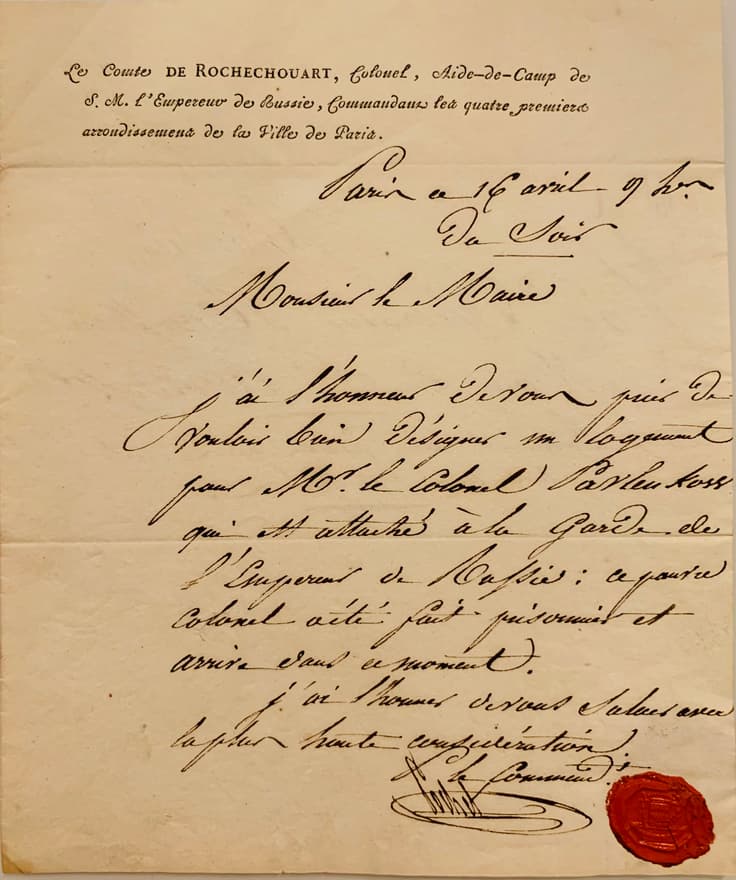 Le Comte DE ROCHECHOUART, Colonel, Aide-de-Camp de
S. M. l'Empereur de Russie, Commandant les quatre premiers
arrondissemens de la Ville de Paris.
Paris ce 16 avril 9 hrs
Du Soir
Monsieur le Maire
j'ai l'honneur de vous prier de
vouloir bien désigner un logement
pour Mr. le Colonel
qui est attaché à la Garde de
l'Empereur de Russie : ce pauvre
colonel a été fait prisonnier et
arrive dans ce moment.
j'ai l'honneur de vous saluer avec
la plus haute considération.
le Commandt